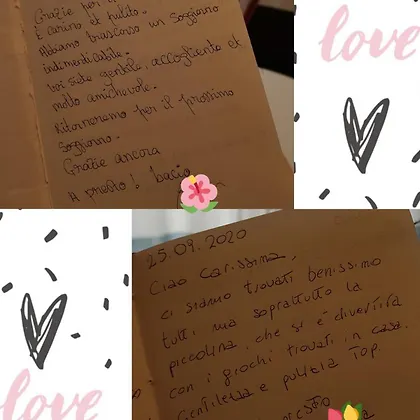 Grazie per
È carino et pulito.
Abbiamo trascorso un soggiorno
indimenticabile.
voi siete gentile, accogliente et
molto amichevole.
Ritorneremo per il prossimo
soggiorno.
Grazie ancora
A presto! bacio
love
25.09.2020
Ciao Carissima,
ci siamo trovati benissimo
tutti, ma soprattutto la
piccolina, che si è divertita
con i giochi trovati in casa.
Gentilezza e pulizia TOP
love